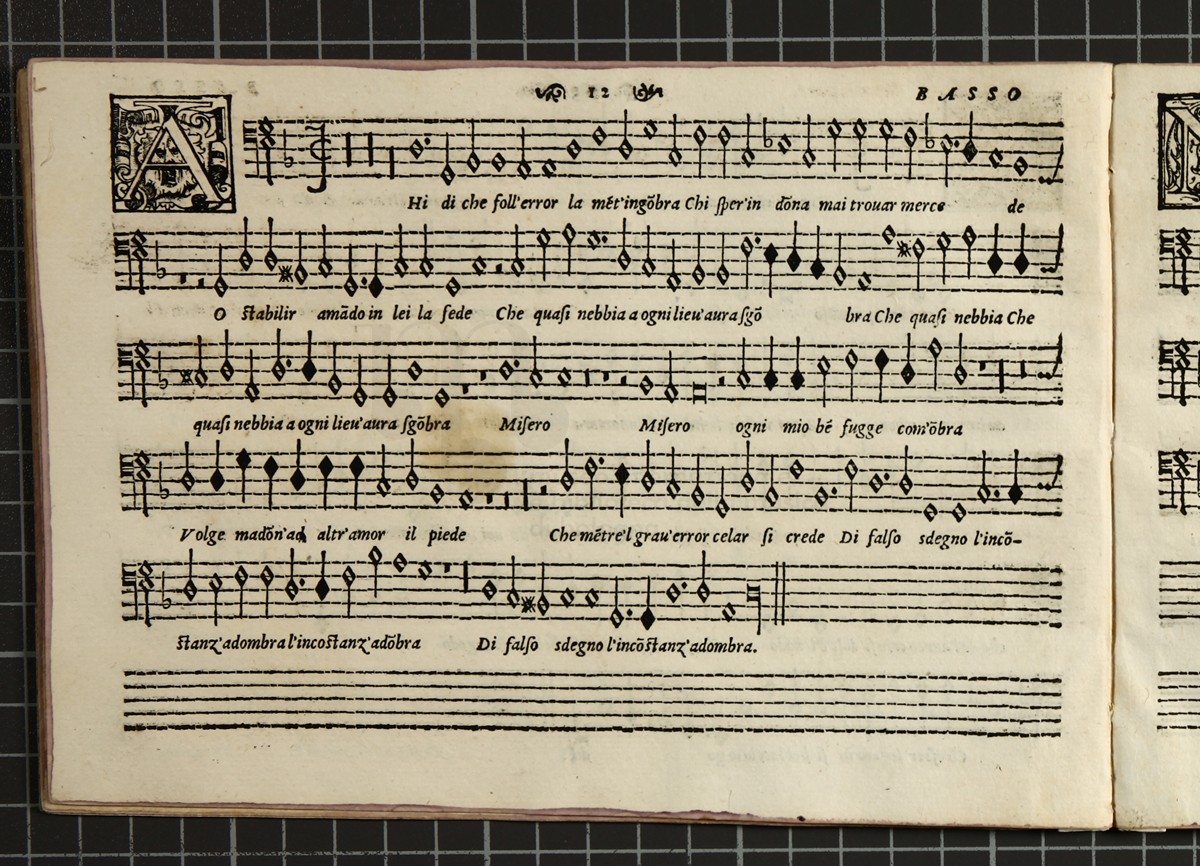 12 BASSO
AHi di che foll'error la mẽt'ingõbra Chi ſper'in dõna mai trouar mercede
O ſtabilir amãdo in lei la fede Che quaſi nebbia a ogni lieu'aura ſgõbra Che quaſi nebbia Che
quaſi nebbia a ogni lieu'aura ſgõbra Miſero Miſero ogni mio bẽ fugge com'õbra
Volge madõn'ad altr'amor il piede Che mẽtre'l grau'error celar ſi crede Di falſo sdegno l'incõ-
ſtanz'adombra l'incoſtanz'adõbra Di falſo sdegno l'incõſtanz'adombra.